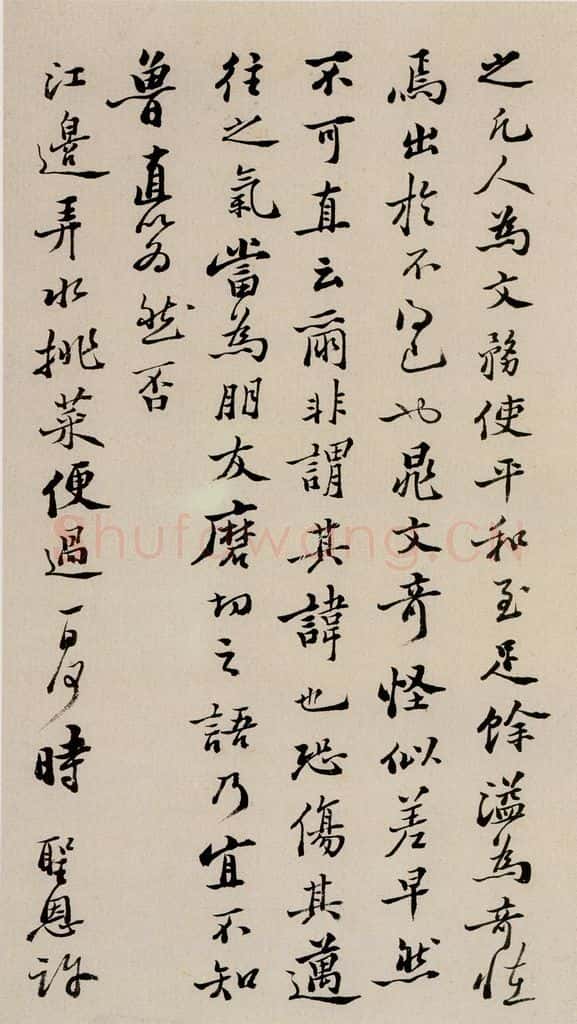 之凡人為文務使平和至足餘溢為奇怪
焉出於不得已也晁文奇怪似差早然
不可直云爾非謂其諱也恐傷其邁
往之氣當為朋友磨切之語乃宜不知
魯直以為然否
江邊弄水挑菜便過一日何時 聖恩許
Shufawang.CN